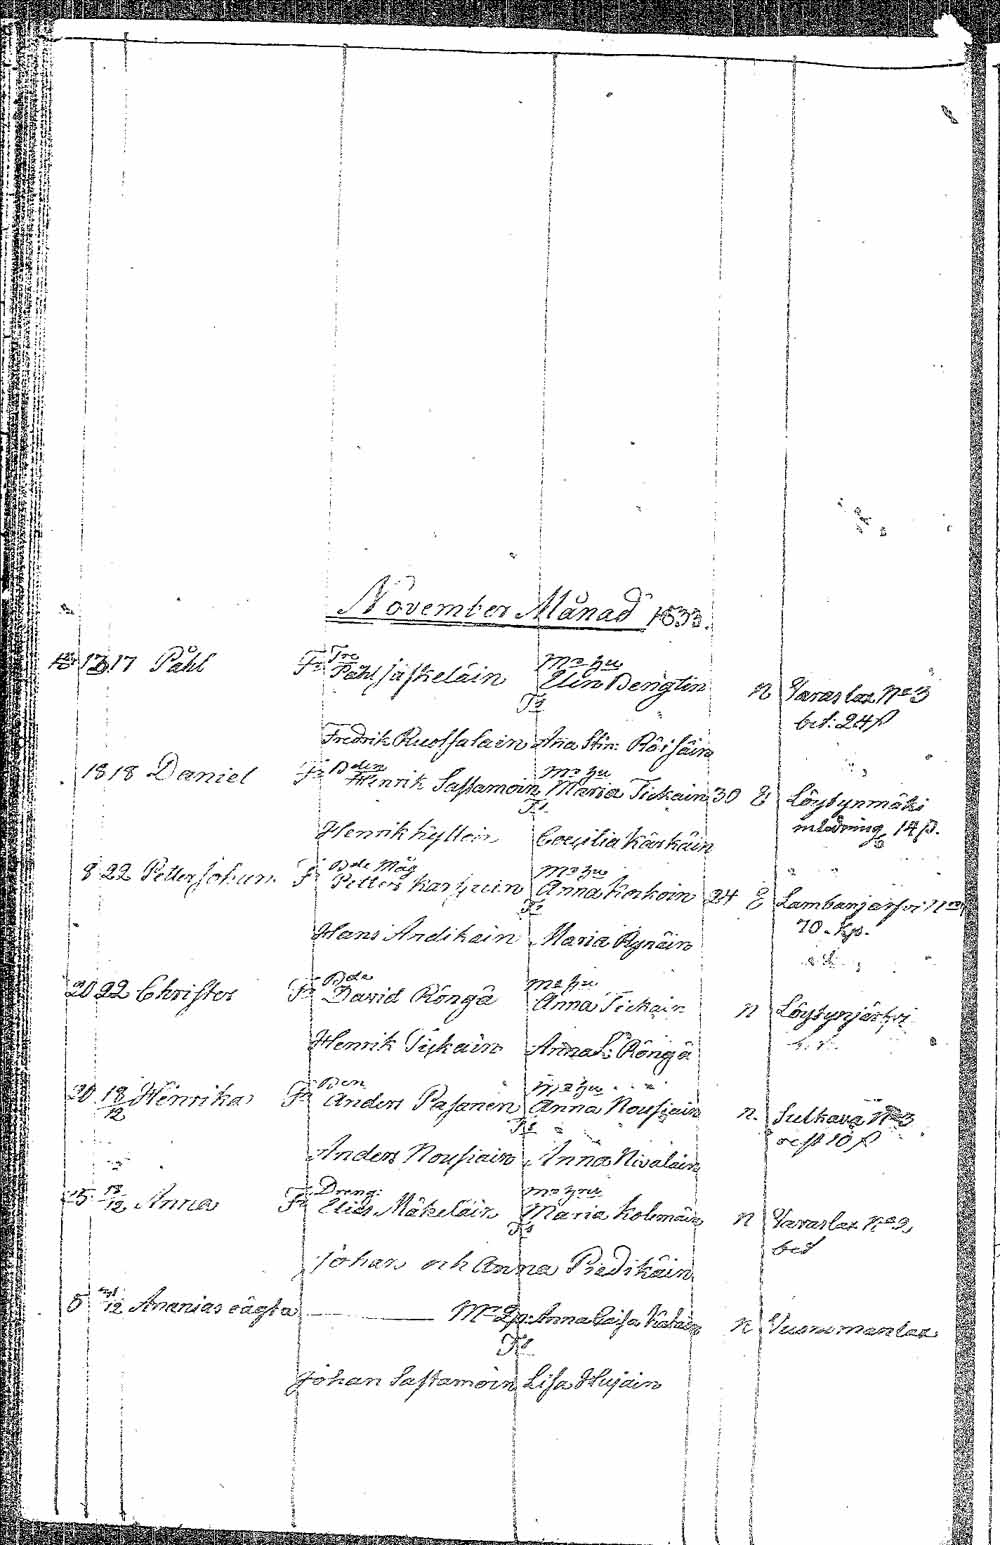 November Månad 1833.
13 17 Påhl Fr Tre Påhl Jäskeläin mo hu Elin Bengtin n Varaslax No 3
bet: 24 ß
Ts
Fredrik Ruotsalain Ana Stin: Röisäin
18 18 Daniel Fr Bden Henrik Sastamoin mo hu Maria Tickain 30 E Löytynmäki
Ts
inladning 14 ß.
Henrik Kyllein Coecilia Kärkäin
8 22 Petter Johan Fr Bde Måg Petter Karhuin mo hu Anna Korkoin 24 E Lambanjärfvi
Ts
70. kp.
Hans Andikain Maria Rynäin
20 22 Christer Fr Bde David Röngä mo hu Anna Tickain n Löytynjärfvi
Henrik Tickain Anna L: Röngä
20 18/12 Henrika Fr Bden Anders Pasanen mo hu Anna Nousiain n. Sulkava No 3
Ts
rest 10 ß
Anders Nousiain Anna Nivalain
15 18/12 Anna Fr Dreng: Elias Mäkeläin mo hu Maria Kolemain n Varaslax No 2
Ts
bet
Johan och Anna Piedikäin
5 12 Ananias oägta Mr Pig: Anna Caisa n Vuonamanlax
Ts
Johan Sastamoin Lisa Hujain